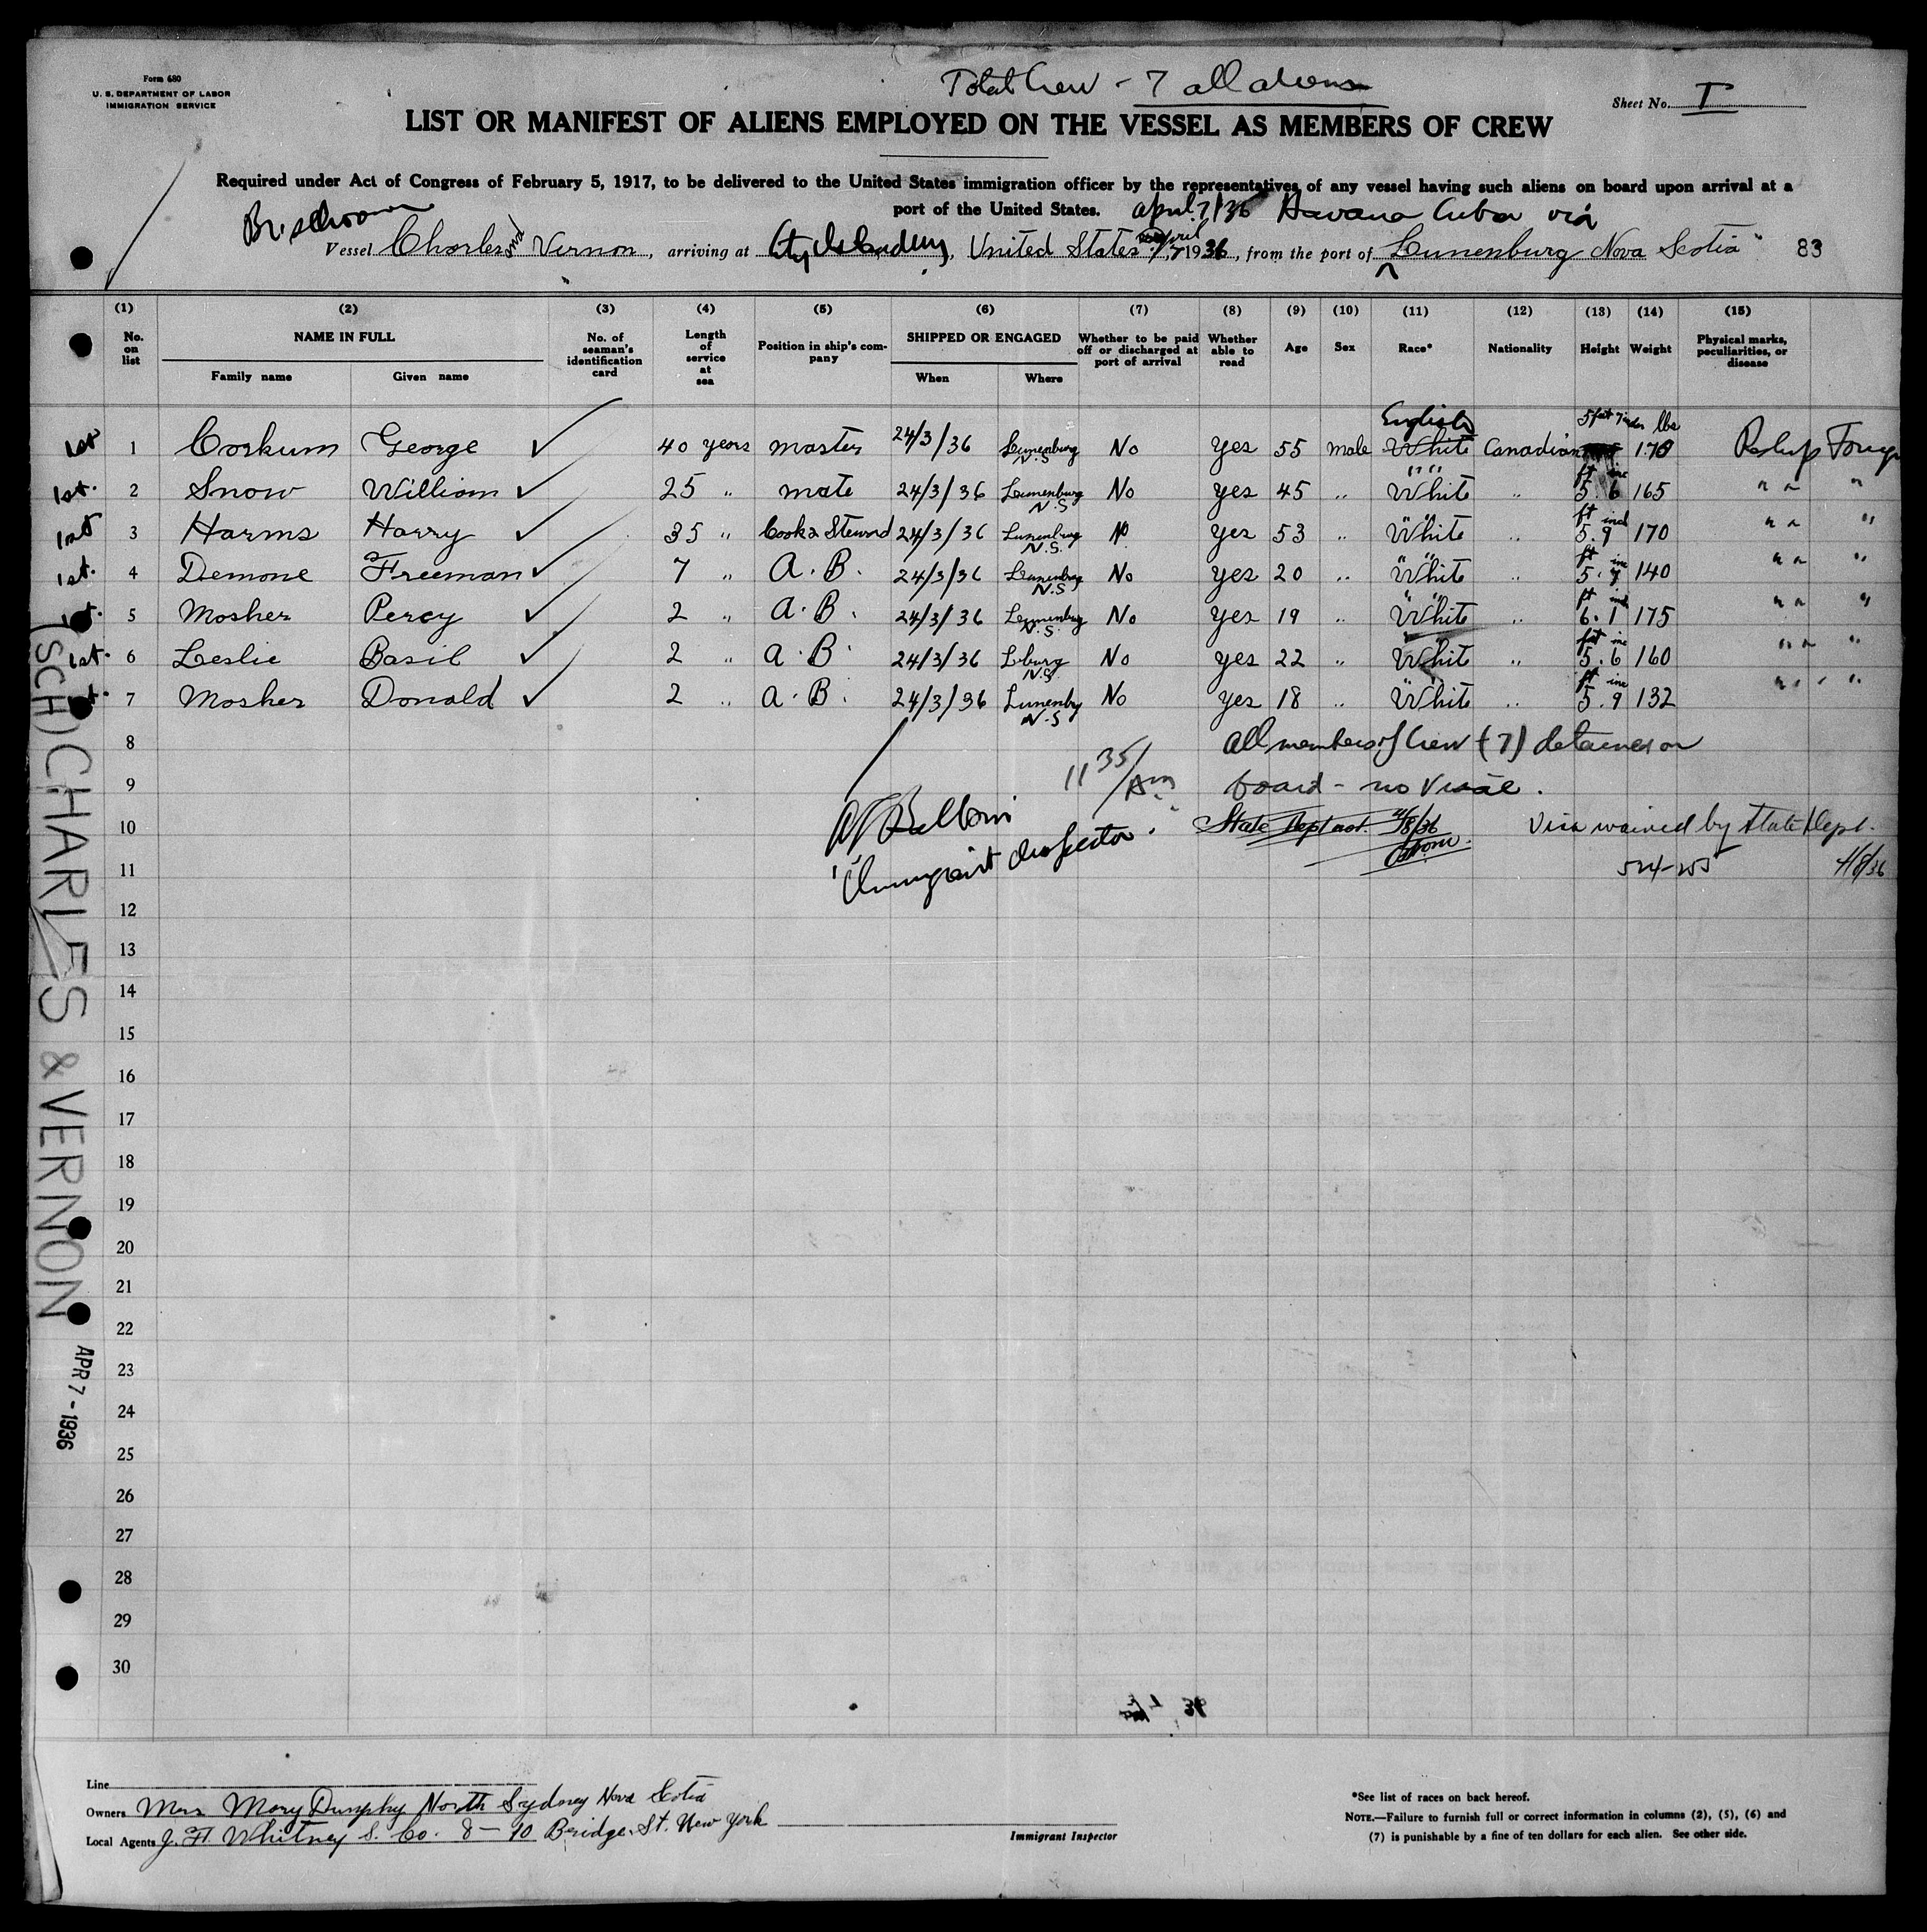 Form 680
U. S. DEPARTMENT OF LABOR
IMMIGRATION SERVICE
Total Crew - 7 all aliens
Sheet No. I
LIST OR MANIFEST OF ALIENS EMPLOYED ON THE VESSEL AS MEMBERS OF CREW
Required under Act of Congress of February 5, 1917, to be delivered to the United States immigration officer by the representatives of any vessel having such aliens on board upon arrival at a
port of the United States. April 7/36 Havana Cuba via
Br. schooner
Vessel Charles and Vernon, arriving at City Island NY, United States April 7, 1936, from the port of Lunenburg Nova Scotia 83
(1) (2) (3) (4) (5) (6) (7) (8) (9) (10) (11) (12) (13) (14) (15)
No. on list NAME IN FULL Family name Given name No. of seaman's identification card Length of service at sea Position in ship's company SHIPPED OR ENGAGED When Where Whether to be paid off or discharged at port of arrival Whether able to read Age Sex Race* Nationality Height Weight Physical marks, peculiarities, or disease
1st 1 Corkum George ✓ 40 years master 24/3/36 Lunenburg N.S No Yes 55 male English White Canadian 5 feet 7 inches 170 lbs
1st. 2 Snow William ✓ 25 " mate 24/3/36 Lunenburg N.S No yes 45 " White " 5 ft 6 inc 165 " " "
1st 3 Harms Harry ✓ 35 " Cook & Steward 24/3/36 Lunenburg N.S. No Yes 53 " White " 5 ft 9 inch 170 " " "
1st. 4 Demone Freeman ✓ 7 " A.B. 24/3/36 Lunenburg N.S No yes 20 " White " 5 ft 7 inc 140 " " "
1st. 5 Mosher Percy ✓ 2 " A.B. 24/3/36 Lunenburg N.S. No Yes 19 " White " 6 ft 1 inch 175 " " "
1st. 6 Leslie Basil ✓ 2 " A.B. 24/3/36 Lburg N.S. No yes 22 " White " 5 feet 6 inc 160 " " "
1st. 7 Mosher Donald ✓ 2 " A.B. 24/3/36 Lunenbg N.S No Yes 18 " White " 5 ft 9 inc 132 " " "
8 All members of Crew (7) detained on
9 11 35/Am board - no Visae.
10 State Dept 4/8/36 Visa waived by State Dept.
Immigrant Inspector.
11 4/8/36
12
13
14
15
16
17
18
19
20
21
22
23
24
25
26
27
28
29
30
(SCH) CHARLES & VERNON
APR 7 - 1936
Line
Owners Mrs Mary Dunphy North Sydney Nova Scotia
Local Agents J. F. Whitney S. Co. 8-10 Bridge St. New York
Immigrant Inspector
*See list of races on back hereof.
NOTE.—Failure to furnish full or correct information in columns (2), (5), (6) and
(7) is punishable by a fine of ten dollars for each alien. See other side.